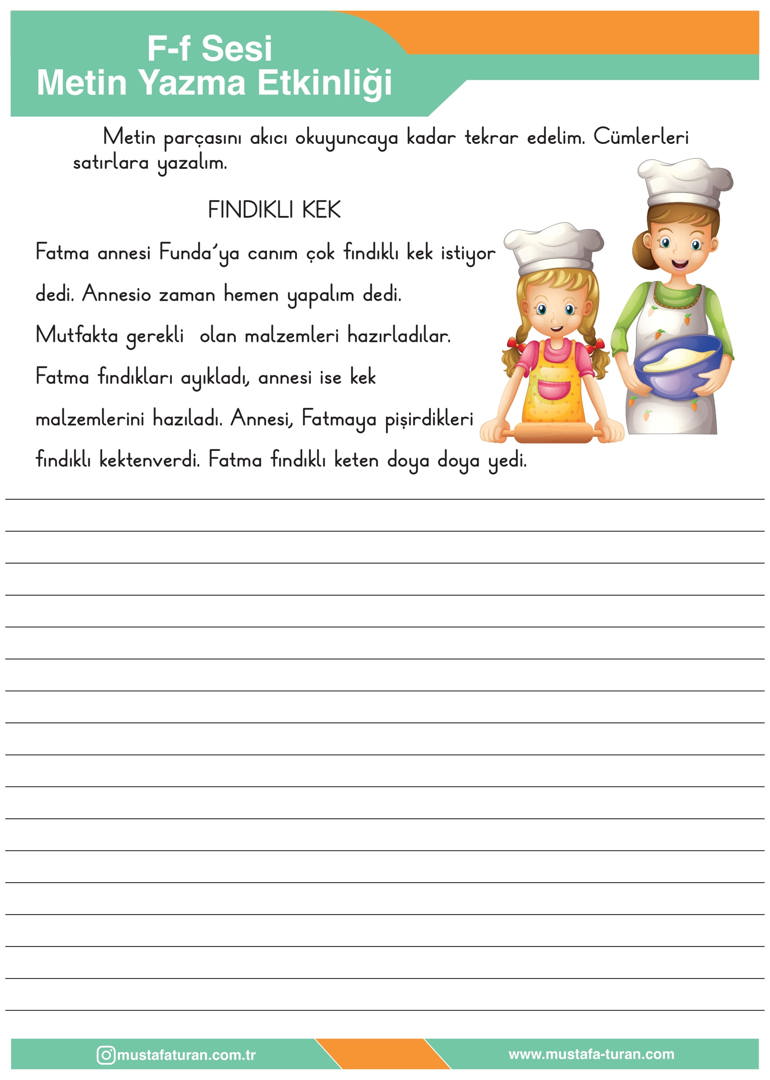 F-f Sesi
Metin Yazma Etkinliği
Metin parçasını akıcı okuyuncaya kadar tekrar edelim. Cümlerleri
satırlara yazalım.
FINDIKLI KEK
Fatma annesi Funda´ya canım çok fındıklı kek istiyor
dedi. Annesio zaman hemen yapalım dedi.
Mutfakta gerekli olan malzemleri hazırladılar.
Fatma fındıkları ayıkladı, annesi ise kek
malzemlerini hazıladı. Annesi, Fatmaya pişirdikleri
fındıklı kektenverdi. Fatma fındıklı keten doya doya yedi.
mustafaturan.com.tr
www.mustafa-turan.com